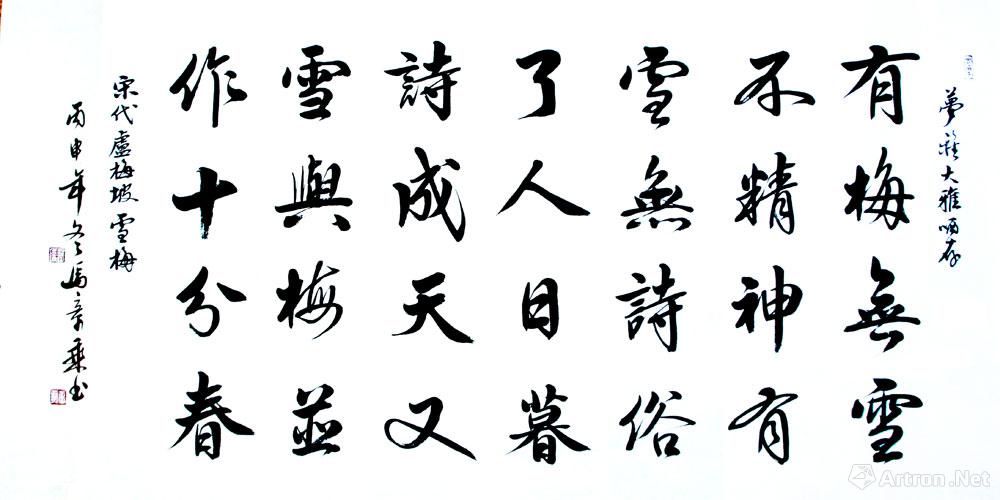 夢龍大雅哂存
有梅無雪
不精神有
雪無詩俗
了人日暮
詩成天又
雪與梅並
作十分春
宋代盧梅坡雪梅
丙申年冬馬章乘書
Artron.Net